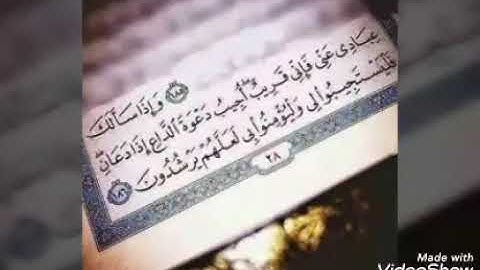 ﴿١٨٥﴾ وَإِذَا سَأَلَكَ
عِبَادِى عَنِّى فَإِنِّى قَرِيبٌ أُجِيبُ دَعْوَةَ ٱلدَّاعِ إِذَا دَعَانِ
فَلْيَسْتَجِيبُوا۟ لِى وَلْيُؤْمِنُوا۟ بِى لَعَلَّهُمْ يَرْشُدُونَ ﴿١٨٦﴾
٢٨
Made with
VideoShow